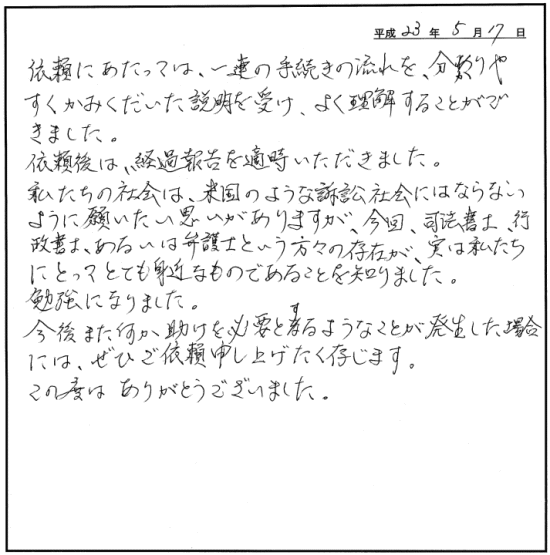 平成 23 年 5 月 17 日
依頼にあたっては、一連の手続きの流れを、分かりや
すくかみくだいた説明を受け、よく理解することがで
きました。
依頼後は、経過報告を適時いただきました。
私たちの社会は、米国のような訴訟社会にはならない
ように願いたい思いがありますが、今回、司法書士、行
政書士、あるいは弁護士という方々の存在が、実は私たち
にとってとても身近なものであることを知りました。
勉強になりました。
今後また何か助けを必要とするようなことが発生した場合
には、ぜひご依頼申し上げたく存じます。
この度は ありがとうございました。